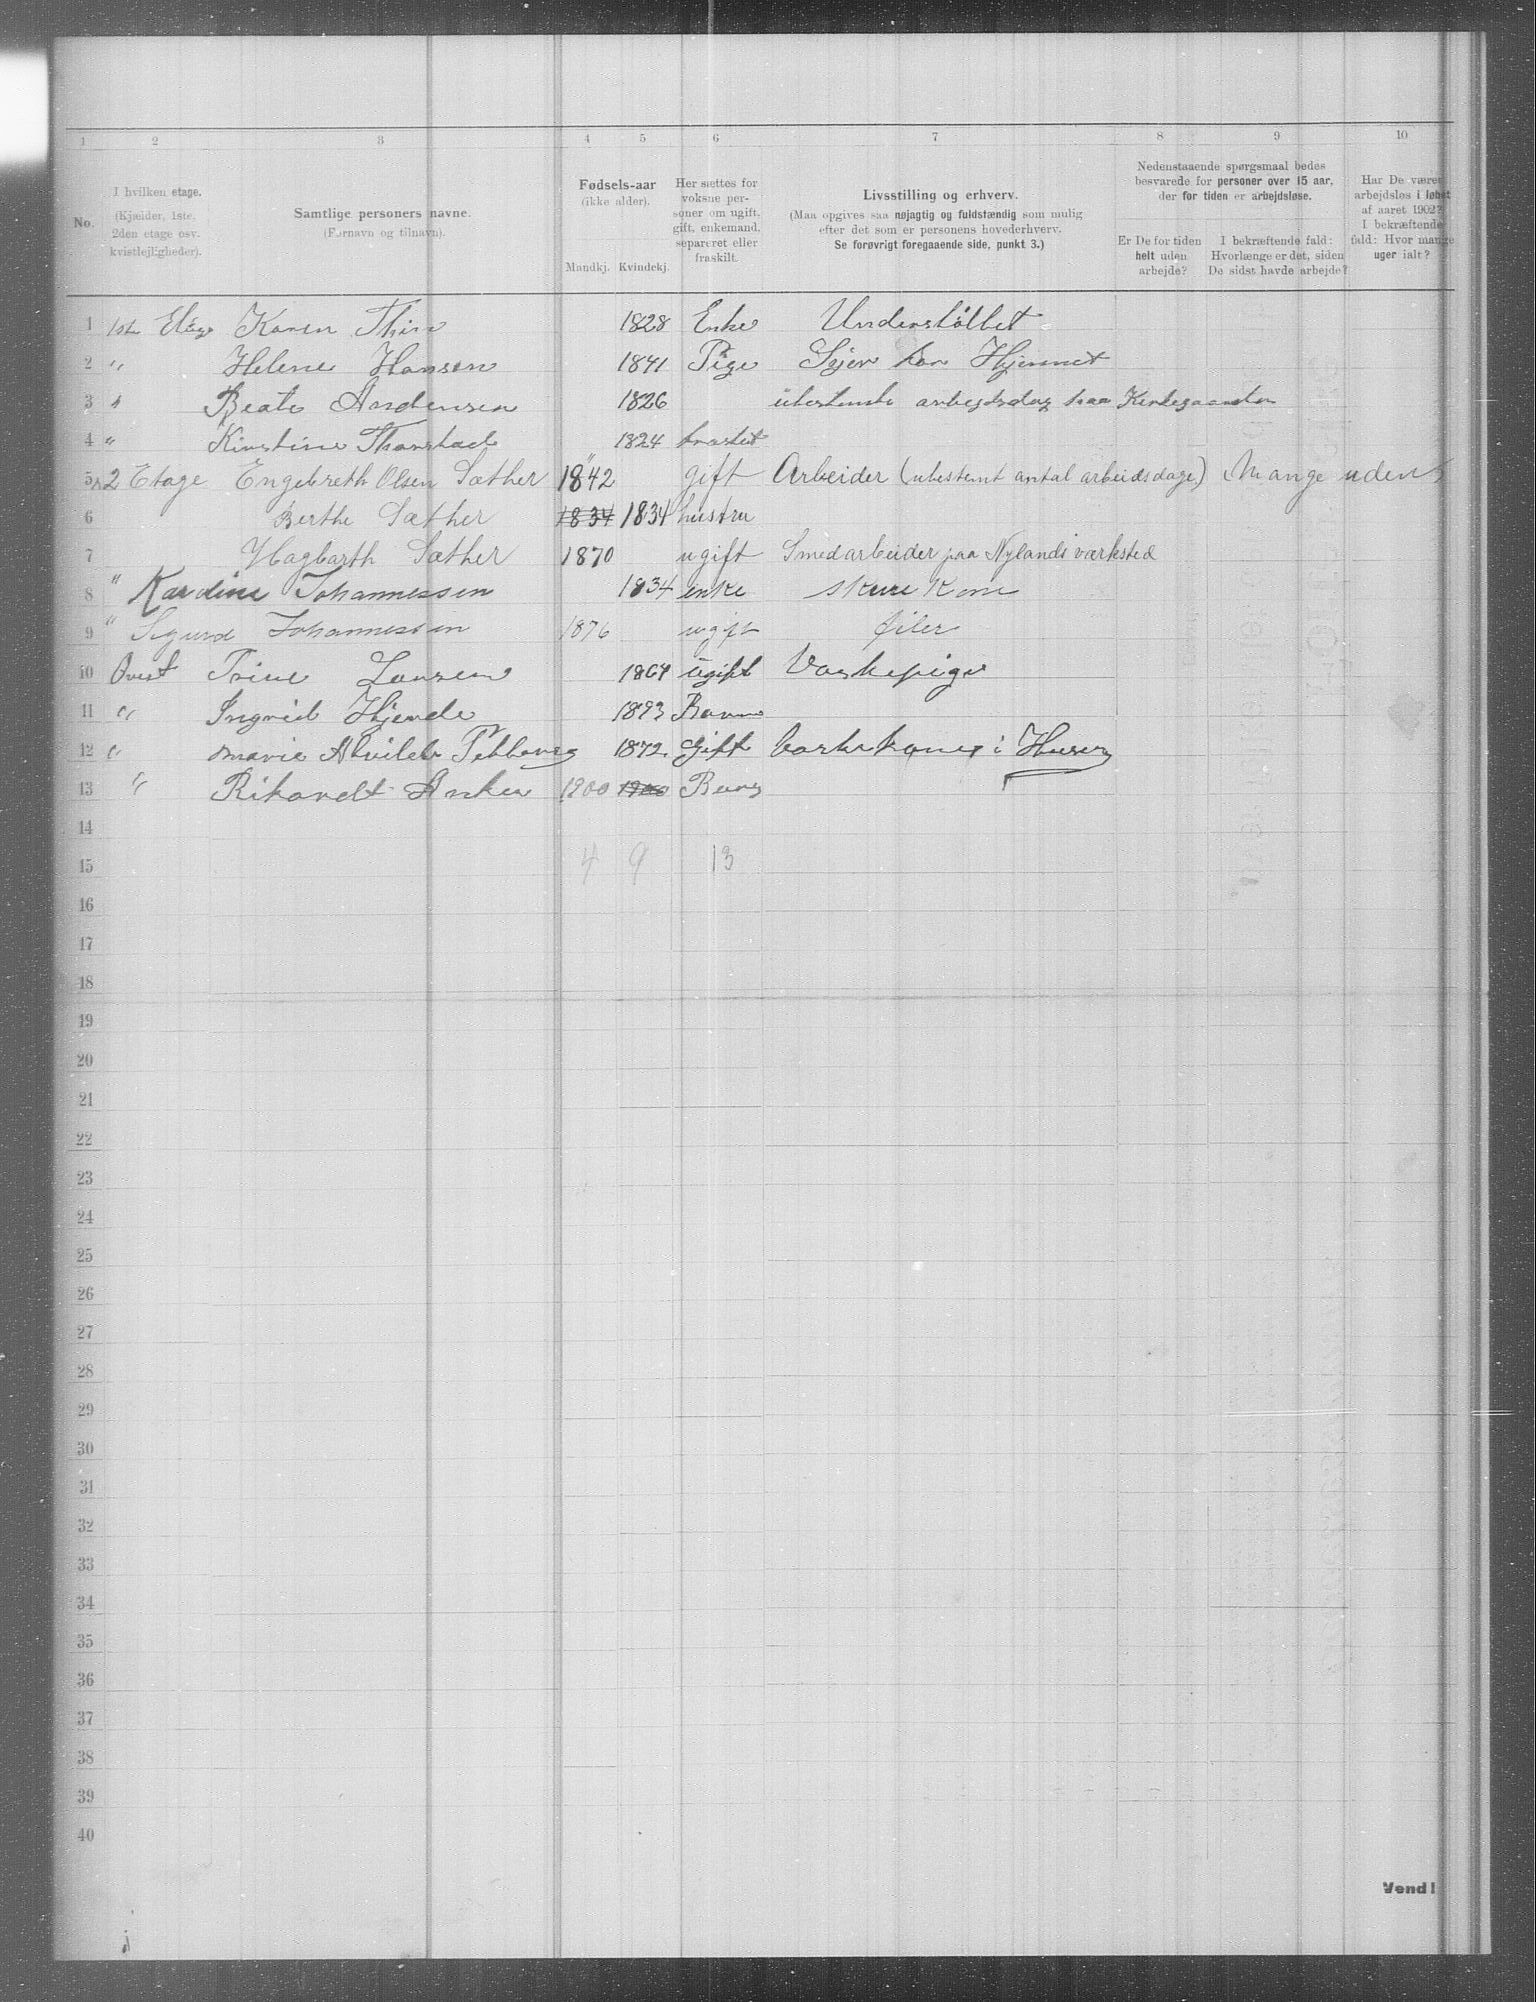 1 2 3 4 5 6 7 8 9 10
No.
I hvilken etage.
(Kjælder, 1ste, 2den etage osv. kvistlejligheder).
Samtlige personers navne.
(Fornavn og tilnavn).
Fødsels-aar
(ikke alder).
Mandkj. Kvindekj.
Her sættes for voksne personer om ugift, gift, enkemand, separeret eller fraskilt.
Livsstilling og erhverv.
(Maa opgives saa nøjagtig og fuldstændig som mulig efter det som er personens hovederhverv.
Se forøvrigt foregaaende side, punkt 3.)
Nedenstaaende spørgsmaal bedes besvarede for personer over 15 aar, der for tiden er arbejdsløse.
Er De for tiden helt uden arbejde?
I bekræftende fald: Hvorlænge er det, siden De sidst havde arbejde?
Har De været arbejdsløs i løbet af aaret 1902?
I bekræftende fald: Hvor mange uger ialt?
1 1ste Etage Karen 1828 Enke Understøttet
2 " Helene Hansen 1841 Pige Syer Hjemmet
3 " Beate Andersen 1826 ubestemte arbejdsdag paa
4 " Kirstine Thorstad 1824 fraskilt
5 2 Etage Engebreth Olsen Sæther 1842 gift Arbeider (ubestemt antal arbeidsdage) Mange uden
6 Berthe Sæther 1834 1834 hustru
7 Hagbarth Sæther 1870 ugift Smedarbeider paa Nylands værksted
8 " Johannessen 1834 enke skurekone
9 " Sigurd Johannessen 1876 ugift filer
10 Qvist Trine Larsen ugift Vaskepige
11 " Ingrid 1893 Barn
12 " Marie 1872 Gift i Huset
13 " Rikardt Anker 1900 1900 Barn
14
15 4 9 13
16
17
18
19
20
21
22
23
24
25
26
27
28
29
30
31
32
33
34
35
36
37
38
39
40
Vend!